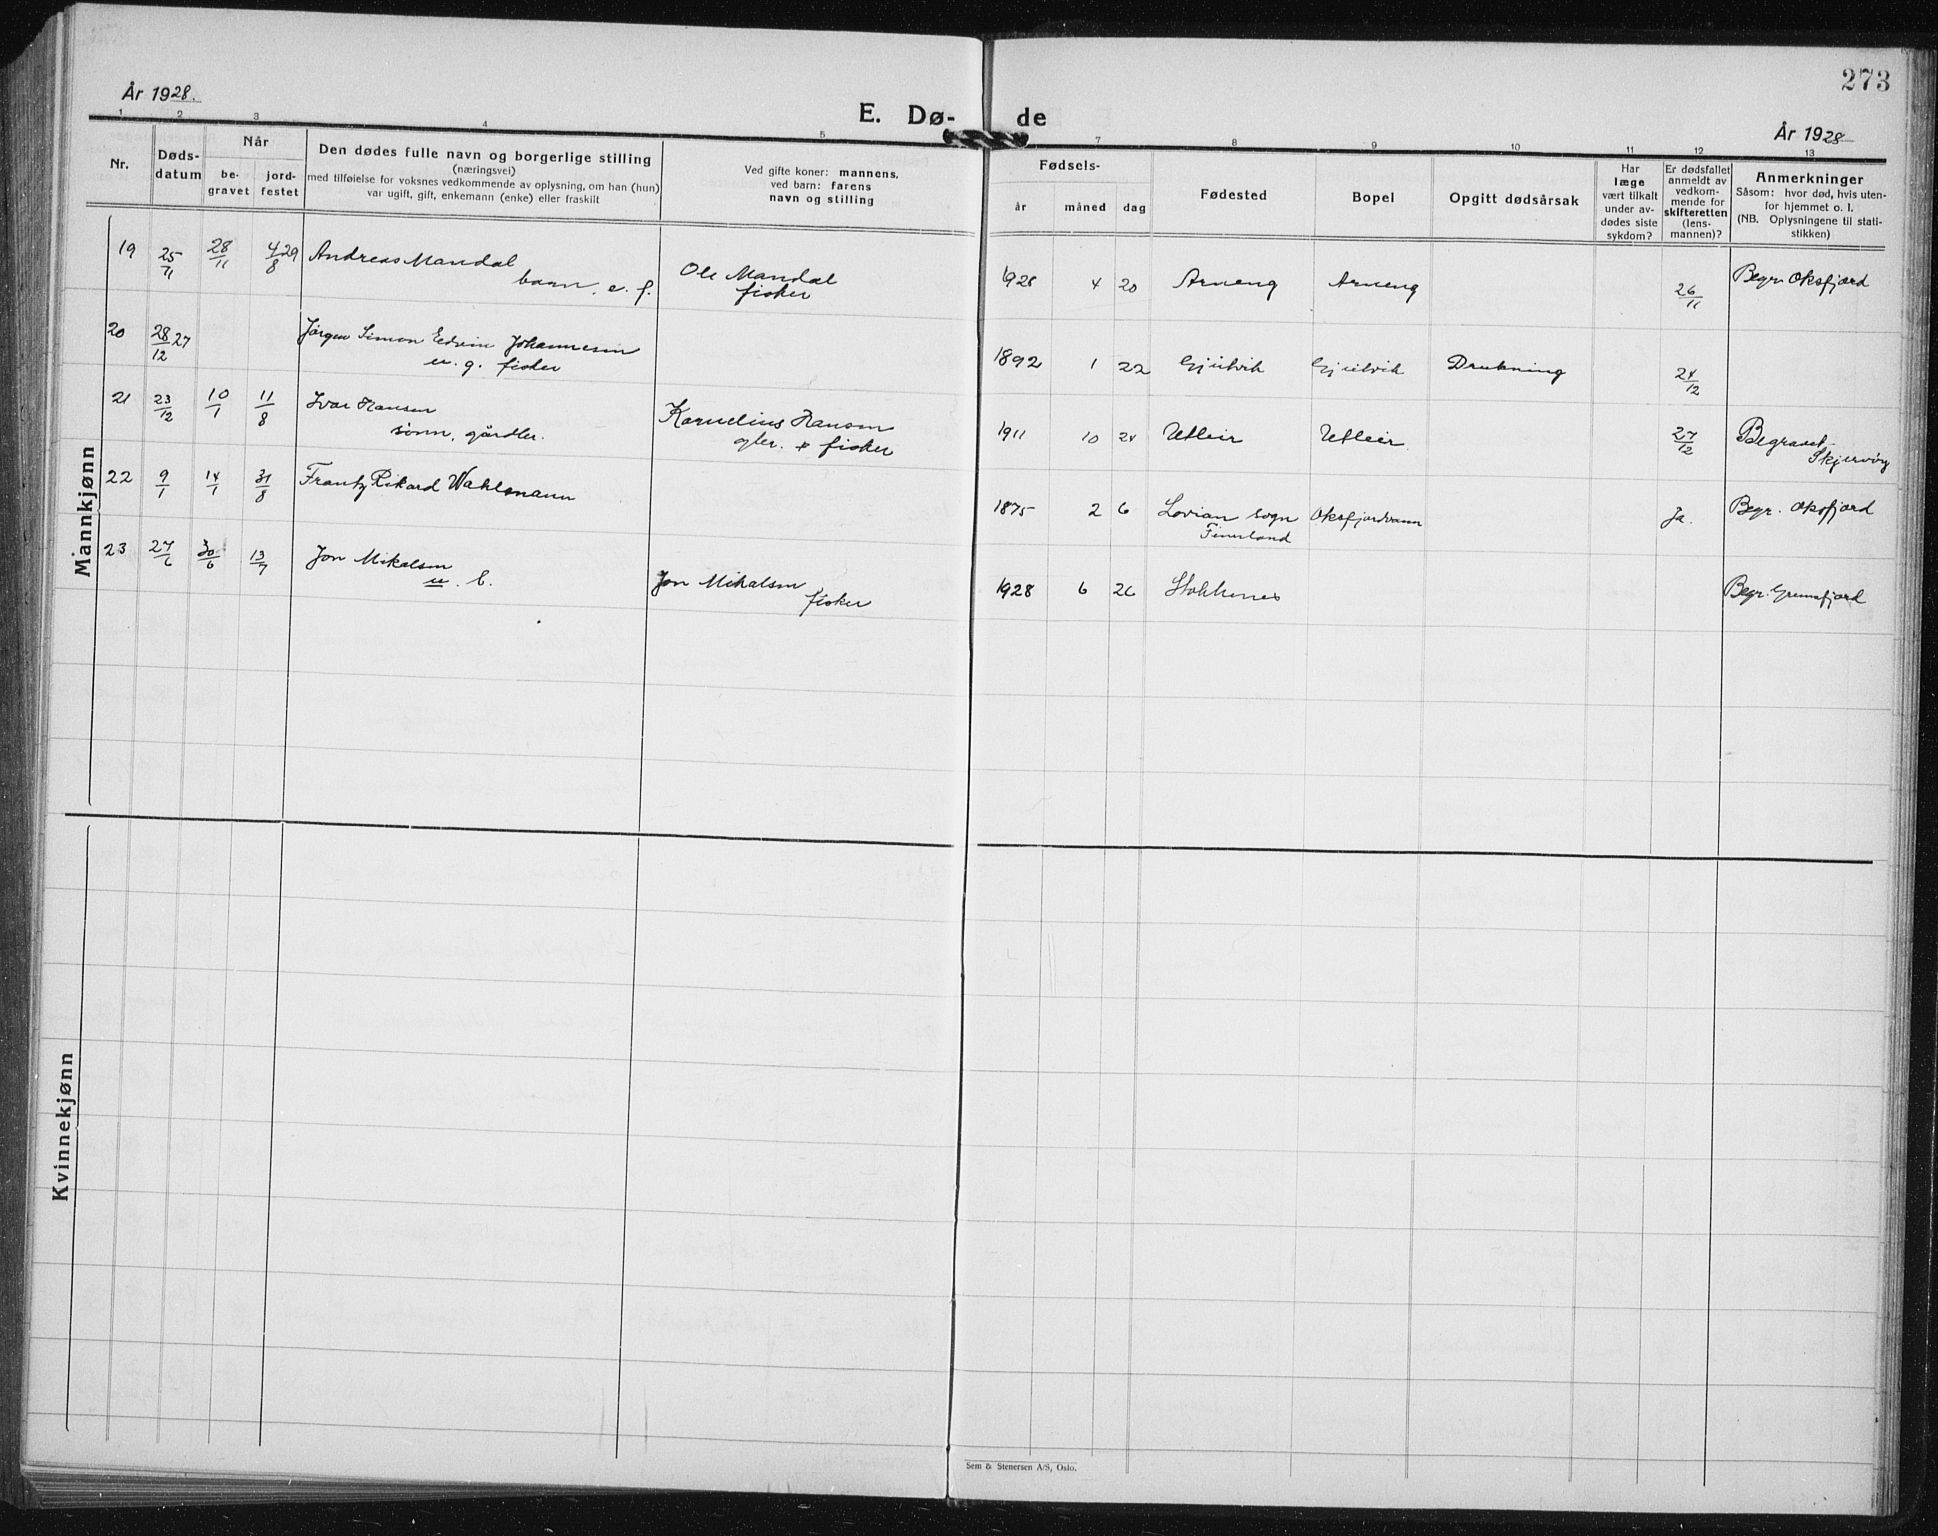 273
År 1928.
E. Dø-
de
År 1928
1 2 3 4 5
7 8 9 10 11 12 13
Nr.
Døds-
datum
Når
be-
gravet
jord-
festet
Den dødes fulle navn og borgerlige stilling
(næringsvei)
med tilføielse for voksnes vedkommende av oplysning, om han (hun)
var ugift, gift, enkemann (enke) eller fraskilt
Ved gifte koner: mannens,
ved barn: farens
navn og stilling
Fødsels-
år
måned
dag
Fødested
Bopel
Opgitt dødsårsak
Har
læge
vært tilkalt
under av-
dødes siste
sykdom?
Er dødsfallet
anmeldt av
vedkom-
mende for
skifteretten
(lens-
mannen)?
Anmerkninger
Såsom: hvor død, hvis uten-
for hjemmet o. l.
(NB. Oplysningene til stati-
stikken)
Mannkjønn
19 25/11 28/11 4/8 29 Andreas Mandal
barn, e. f.
Ole Mandal
fisker
1928 4 20 Arneng Arneng 26/11 Begr. Oksfjord
20 28/12 27 Jørgen Simon Edvin Johannesen
u. g. fisker
1892 1 22 Gjøvik Gjøvik Drukning 24/12
21 23/12 10/1 11/8 Ivar Hansen
sønn, gårdbr.
Kornelius Hansen
gbr. & fisker
1911 10 24 Uløier Uløier 27/12 Begravet
Skjervøy
22 9/1 14/1 31/8 Frantz Rikard Wahlmann
1875 2 6 Lovian sogn Oksfjordvann Ja. Begr. Oksfjord
Finnland
23 27/6 30/6 13/7 Jon Mikalsen
u. b.
Jon Mikalsen
fisker
1928 6 26 Stokkenes Begr. Grunnfjord
Kvinnekjønn
Sem & Stenersen A/S, Oslo.